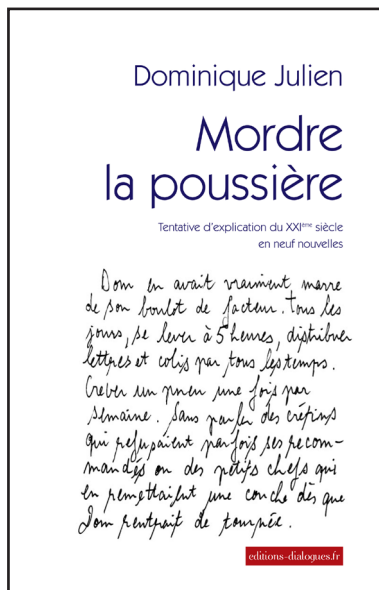 Dominique Julien
Mordre
la poussière
Tentative d'explication du XXIème siècle
en neuf nouvelles
Dom en avait vraiment marre
de son boulot de facteur. Tous les
jours, se lever à 5 heures, distribuer
lettres et colis par tous les temps.
Crever un pneu une fois par
semaine. Sans parler des crétins
qui refusaient parfois ses recom-
mandés ou des petits chefs qui
en remettaient une couche dès que
Dom rentrait de tournée.
editions-dialogues.fr